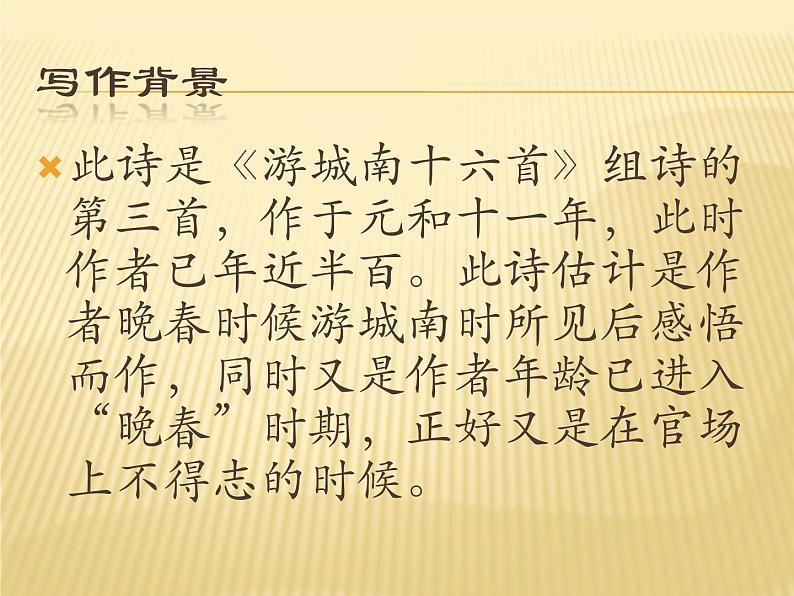 写作背景
此诗是《游城南十六首》组诗的
第三首，作于元和十一年，此时
作者已年近半百。此诗估计是作
者晚春时候游城南时所见后感悟
而作，同时又是作者年龄已进入
“晚春”时期，正好又是在官场
上不得志的时候。